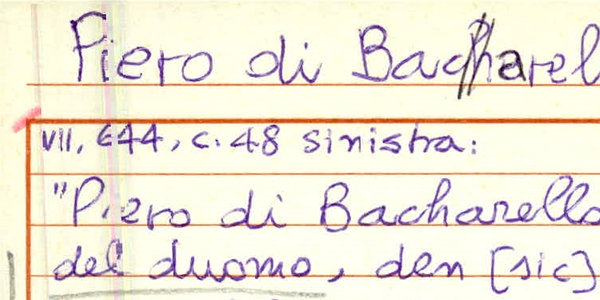 Piero di Bacharel
VII, 644, c. 48 sinistra:
"Piero di Bacharello
del duomo, den [sic]